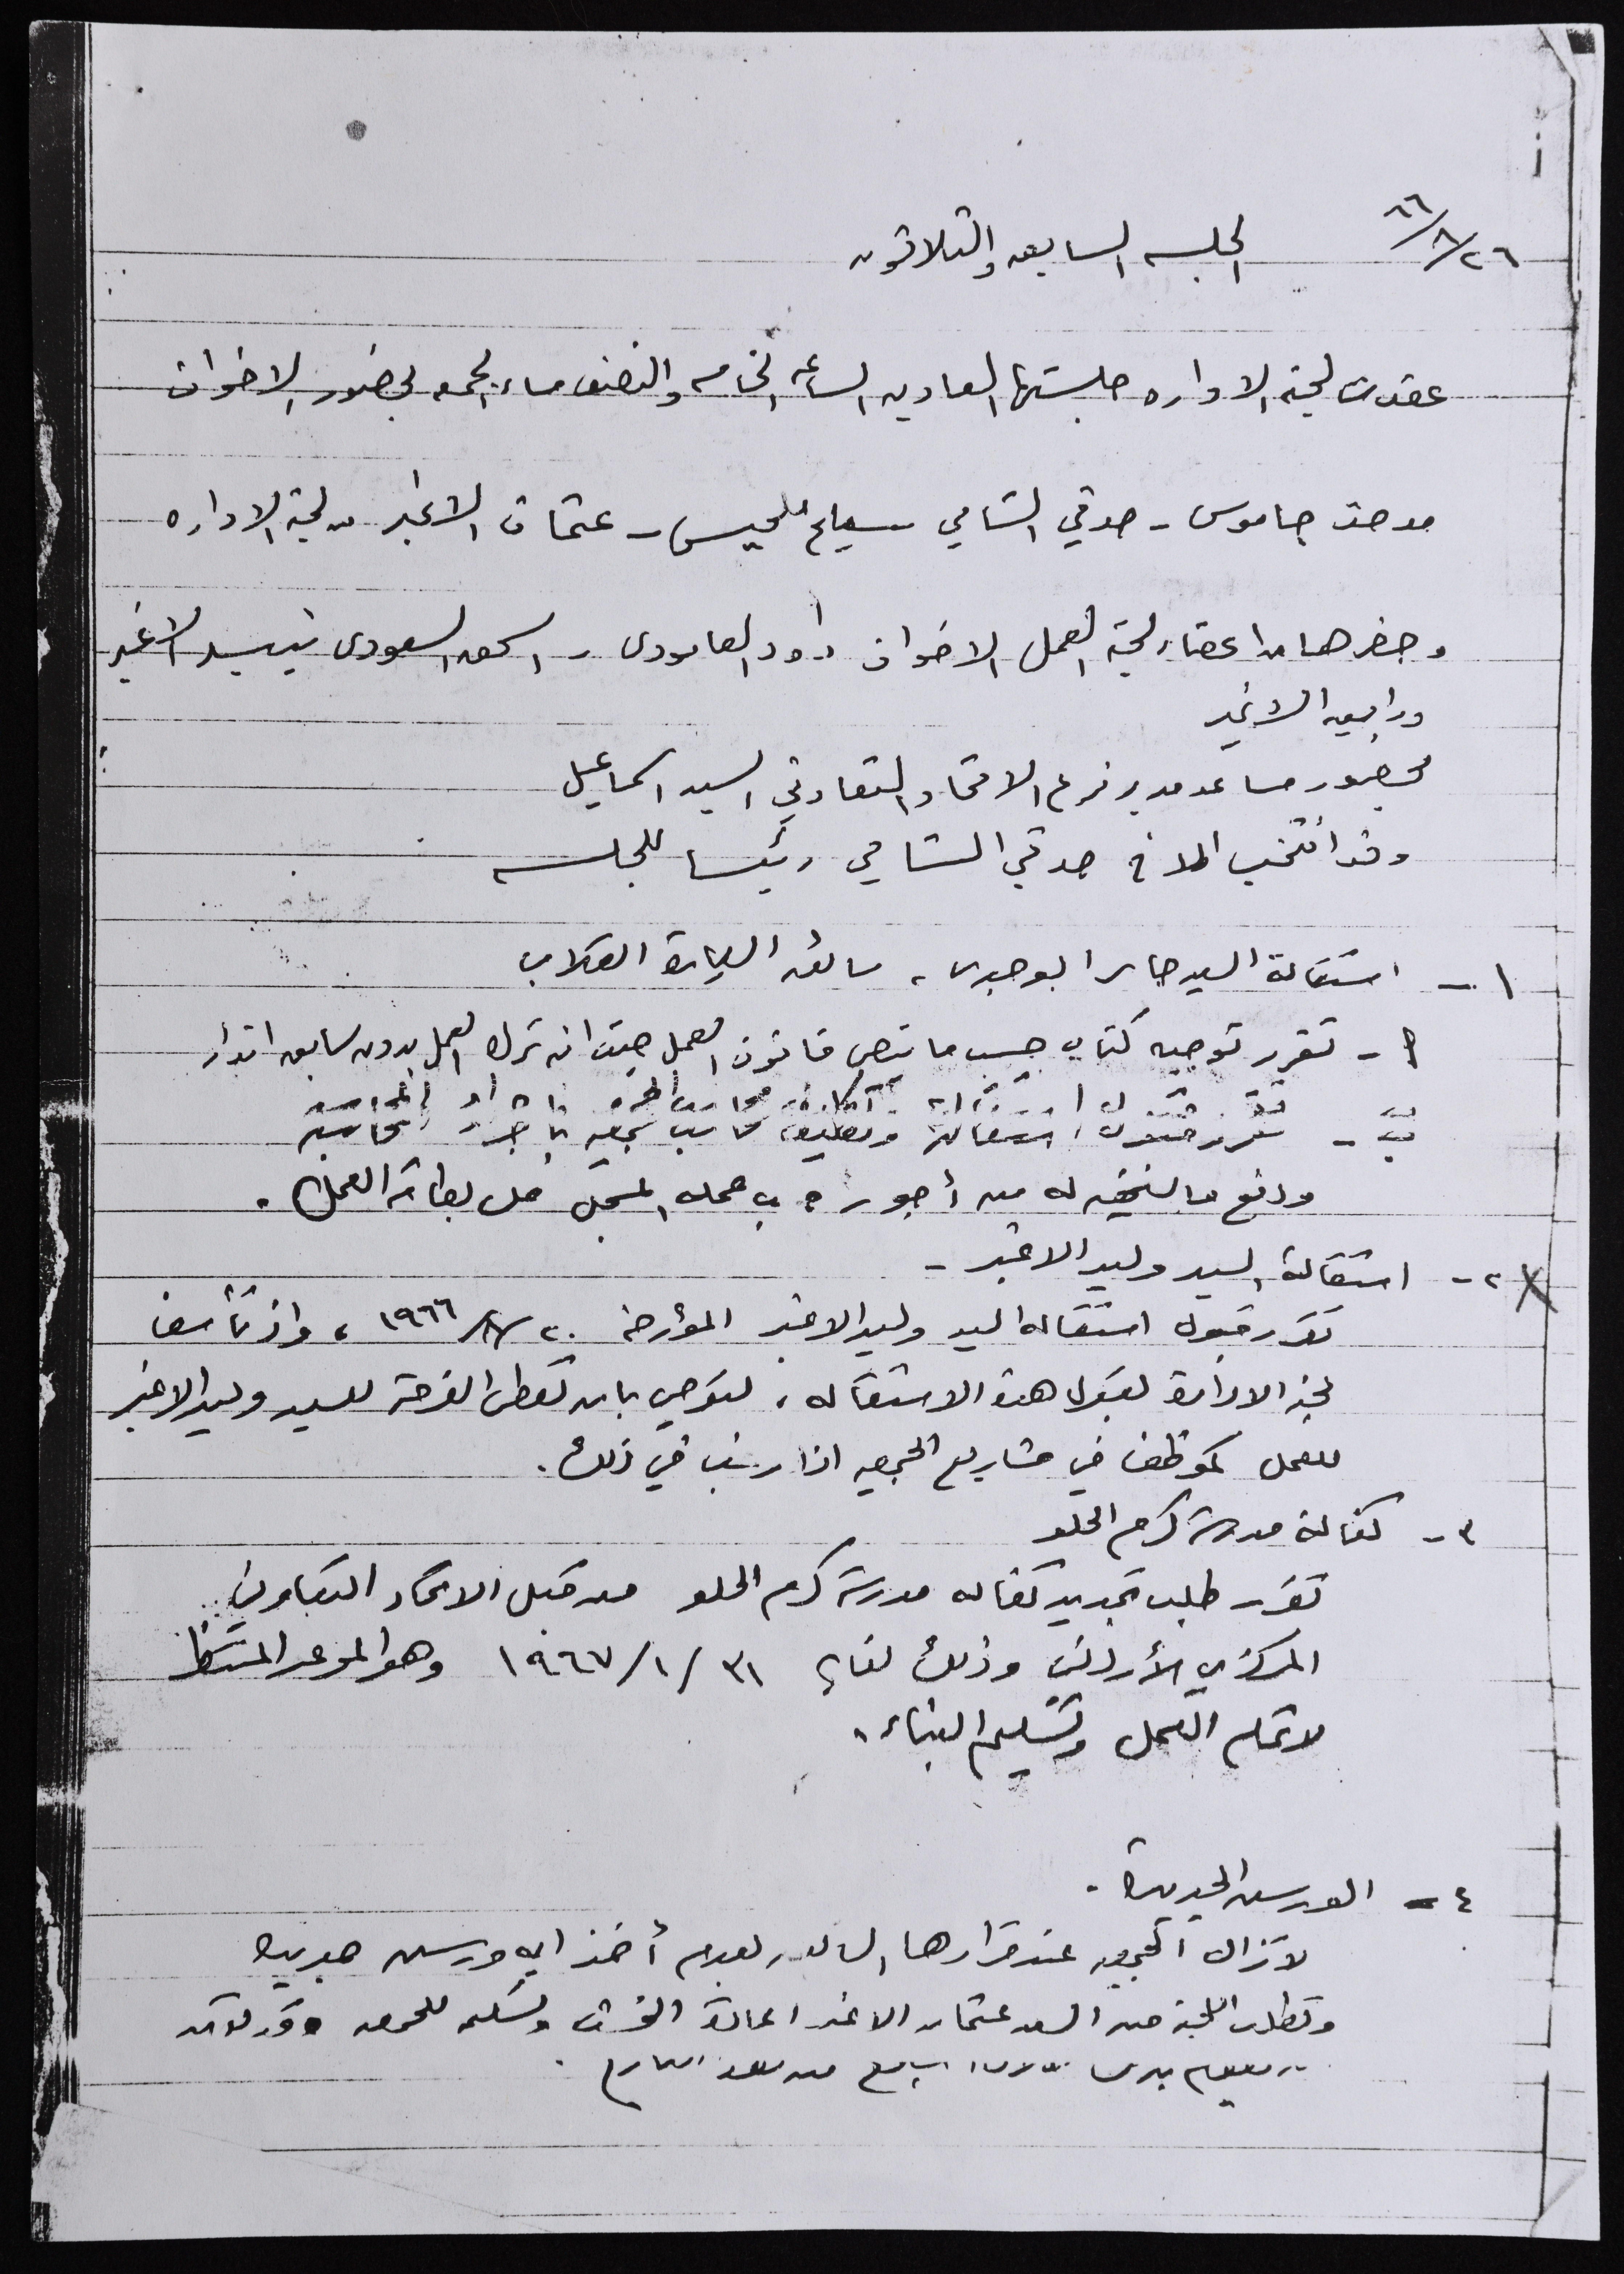 ٢٦/٨/٦٦ الجلسه السابعه والثلاثون
عقدت لجنة الاداره جلستها العاديه الساعه الخامسه والنصف مساء الجمعه بحضور الاخوان
مدحت جاموس - صدقي الشامي - عثمان الاغبر من لجنة الاداره
وحضرها من اعضاء لجنة العمل الاخوان داود العامودى - اسحق السعودى تيسير الاغبر
ورابعه الاغبر
بحضور مساعد مدير فرع الاتحاد التعاوني السيد اسماعيل
وقد انتخب الاخ صدقي الشامي رئيسا للجلسه
١ - استقالة السيد جابر ابو جبرى ، سائق السيارة القلاب
أ - تقرر توجيه كتاب حسب ما ينص قانون العمل حيث انه ترك العمل بدون سابق انذار
ب - تقرر قبول استقالته وتكليف محاسب الجمعيه باجراء المحاسبة
ودفع ما يستحق له من أجوره ب عمله المسجل على بطاقة العمل .
٢ - استقالة السيد وليد الاغبر -
تقرر قبول استقاله السيد وليد الاغبر المؤرخه ٢٠/٨/١٩٦٦ ، واذ تأسف
لجنة الادارة لقبول هذه الاستقاله ، لتوصي بان تعطى الفرصة للسيد وليد الاغبر
للعمل كموظف في مشاريع الجمعيه اذا رغب في ذلك .
٣ - كفالة مدرسة كرم الحلو
تقرر طلب تجديد كفاله مدرسة كرم الحلو من قبل الاتحاد التعاوني
المركزي الأردني وذلك لغاية ٣١/١/١٩٦٧ وهو الموعد المنتظر
لاتمام العمل وتسليم البناء .
٤ - الورسن الجديدة .
لا تزال الجمعيه عند قرارها السابق بعدم أخذ اي ورسن جديده
وتطلب اللجنة من السيد عثمان الاغبر اعادة وتسليمه للجمعيه
اسابيع من هذا التاريخ .